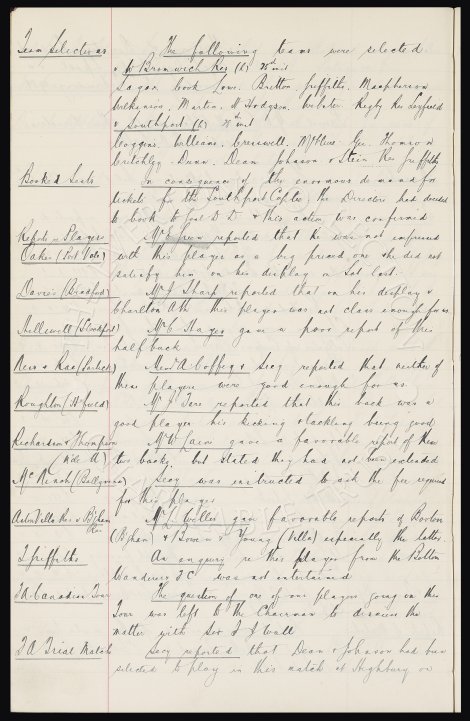 Team Selections The following teams were selected.
v W Bromwich Res (h) 25th inst
Sagar, Cook, Lowe, Britton, Griffiths, Macpherson
Wilkinson, Martin, H Hodgson, Webster, Rigby Res
v Southport (h) 28th inst
Coggins, Williams, Cresswell, McClure, Gee, Thomson
Critchley, Dunn, Dean, Johnson & Stein Res Griffiths
Booked Seats In consequence of the enormous demand for
tickets for the Southport Cuptie, the Directors had decided
to book to Goal D D & this action was confirmed
Reports re Players Mr E Green reported that he was not impressed
Oakes (Port Vale) with this player as a big priced one & he did not
satisfy him on his display on Sat last.
Davies (Bradford) Mr J Sharp reported that on his display v
Charlton Ath this player was not class enough for us
Helliwell (Stockport) Mr C Hayes gave a poor report of this
half back
Neis & Rae (Partick) Messrs A Coffey & Secy reported that neither of
these players were good enough for us.
Roughton (H'field) Mr Fare reported that this back was a
good player his kicking & tackling being good
Richardson & Thompson Mr W Gave a favorable report of these
two backs, but stated they had not been extended
Mc (Ballymena) Secy was instructed to ask the fee required
for this player
Aston Villa Res v B'ham Res Mr gave favorable reports of
(B'ham) & Bowen & Young (Villa) especially the latter.
T Griffiths An enquiry re this player from the Bolton
Wanderers F C was not entertained
F A Canadian Tour The question of one of our players going on this
Tour was left to the Chairman to discuss the
matter with Sir F J Wall
F A Trial Match Secy reported that Dean & Johnson had been
selected to play in this match at Highbury on